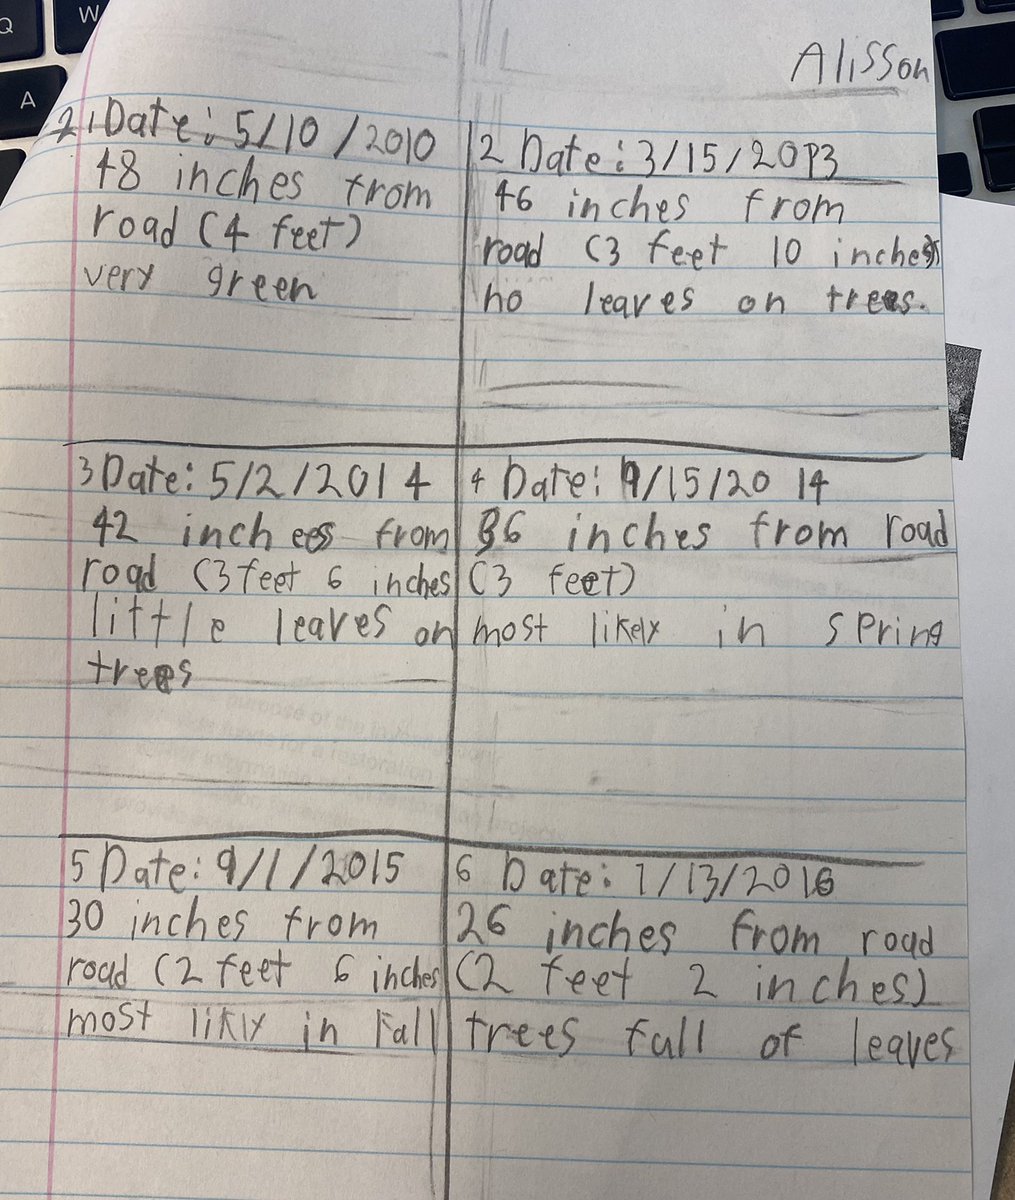 Alisson
1 Date: 5/10/2010
48 inches from
road (4 feet)
very green
2 Date: 3/15/2013
46 inches from
road (3 feet 10 inches)
no leaves on trees.
3 Date: 5/2/2014
42 inchees from
road (3 feet 6 inches
little leaves on
trees
4 Date: 9/15/2014
36 inches from road
(3 feet)
most likely in spring
5 Date: 9/1/2015
30 inches from
road (2 feet 6 inches
most likly in Fall
6 Date: 1/13/2016
26 inches from road
(2 feet 2 inches)
trees full of leaves
Q
W
A